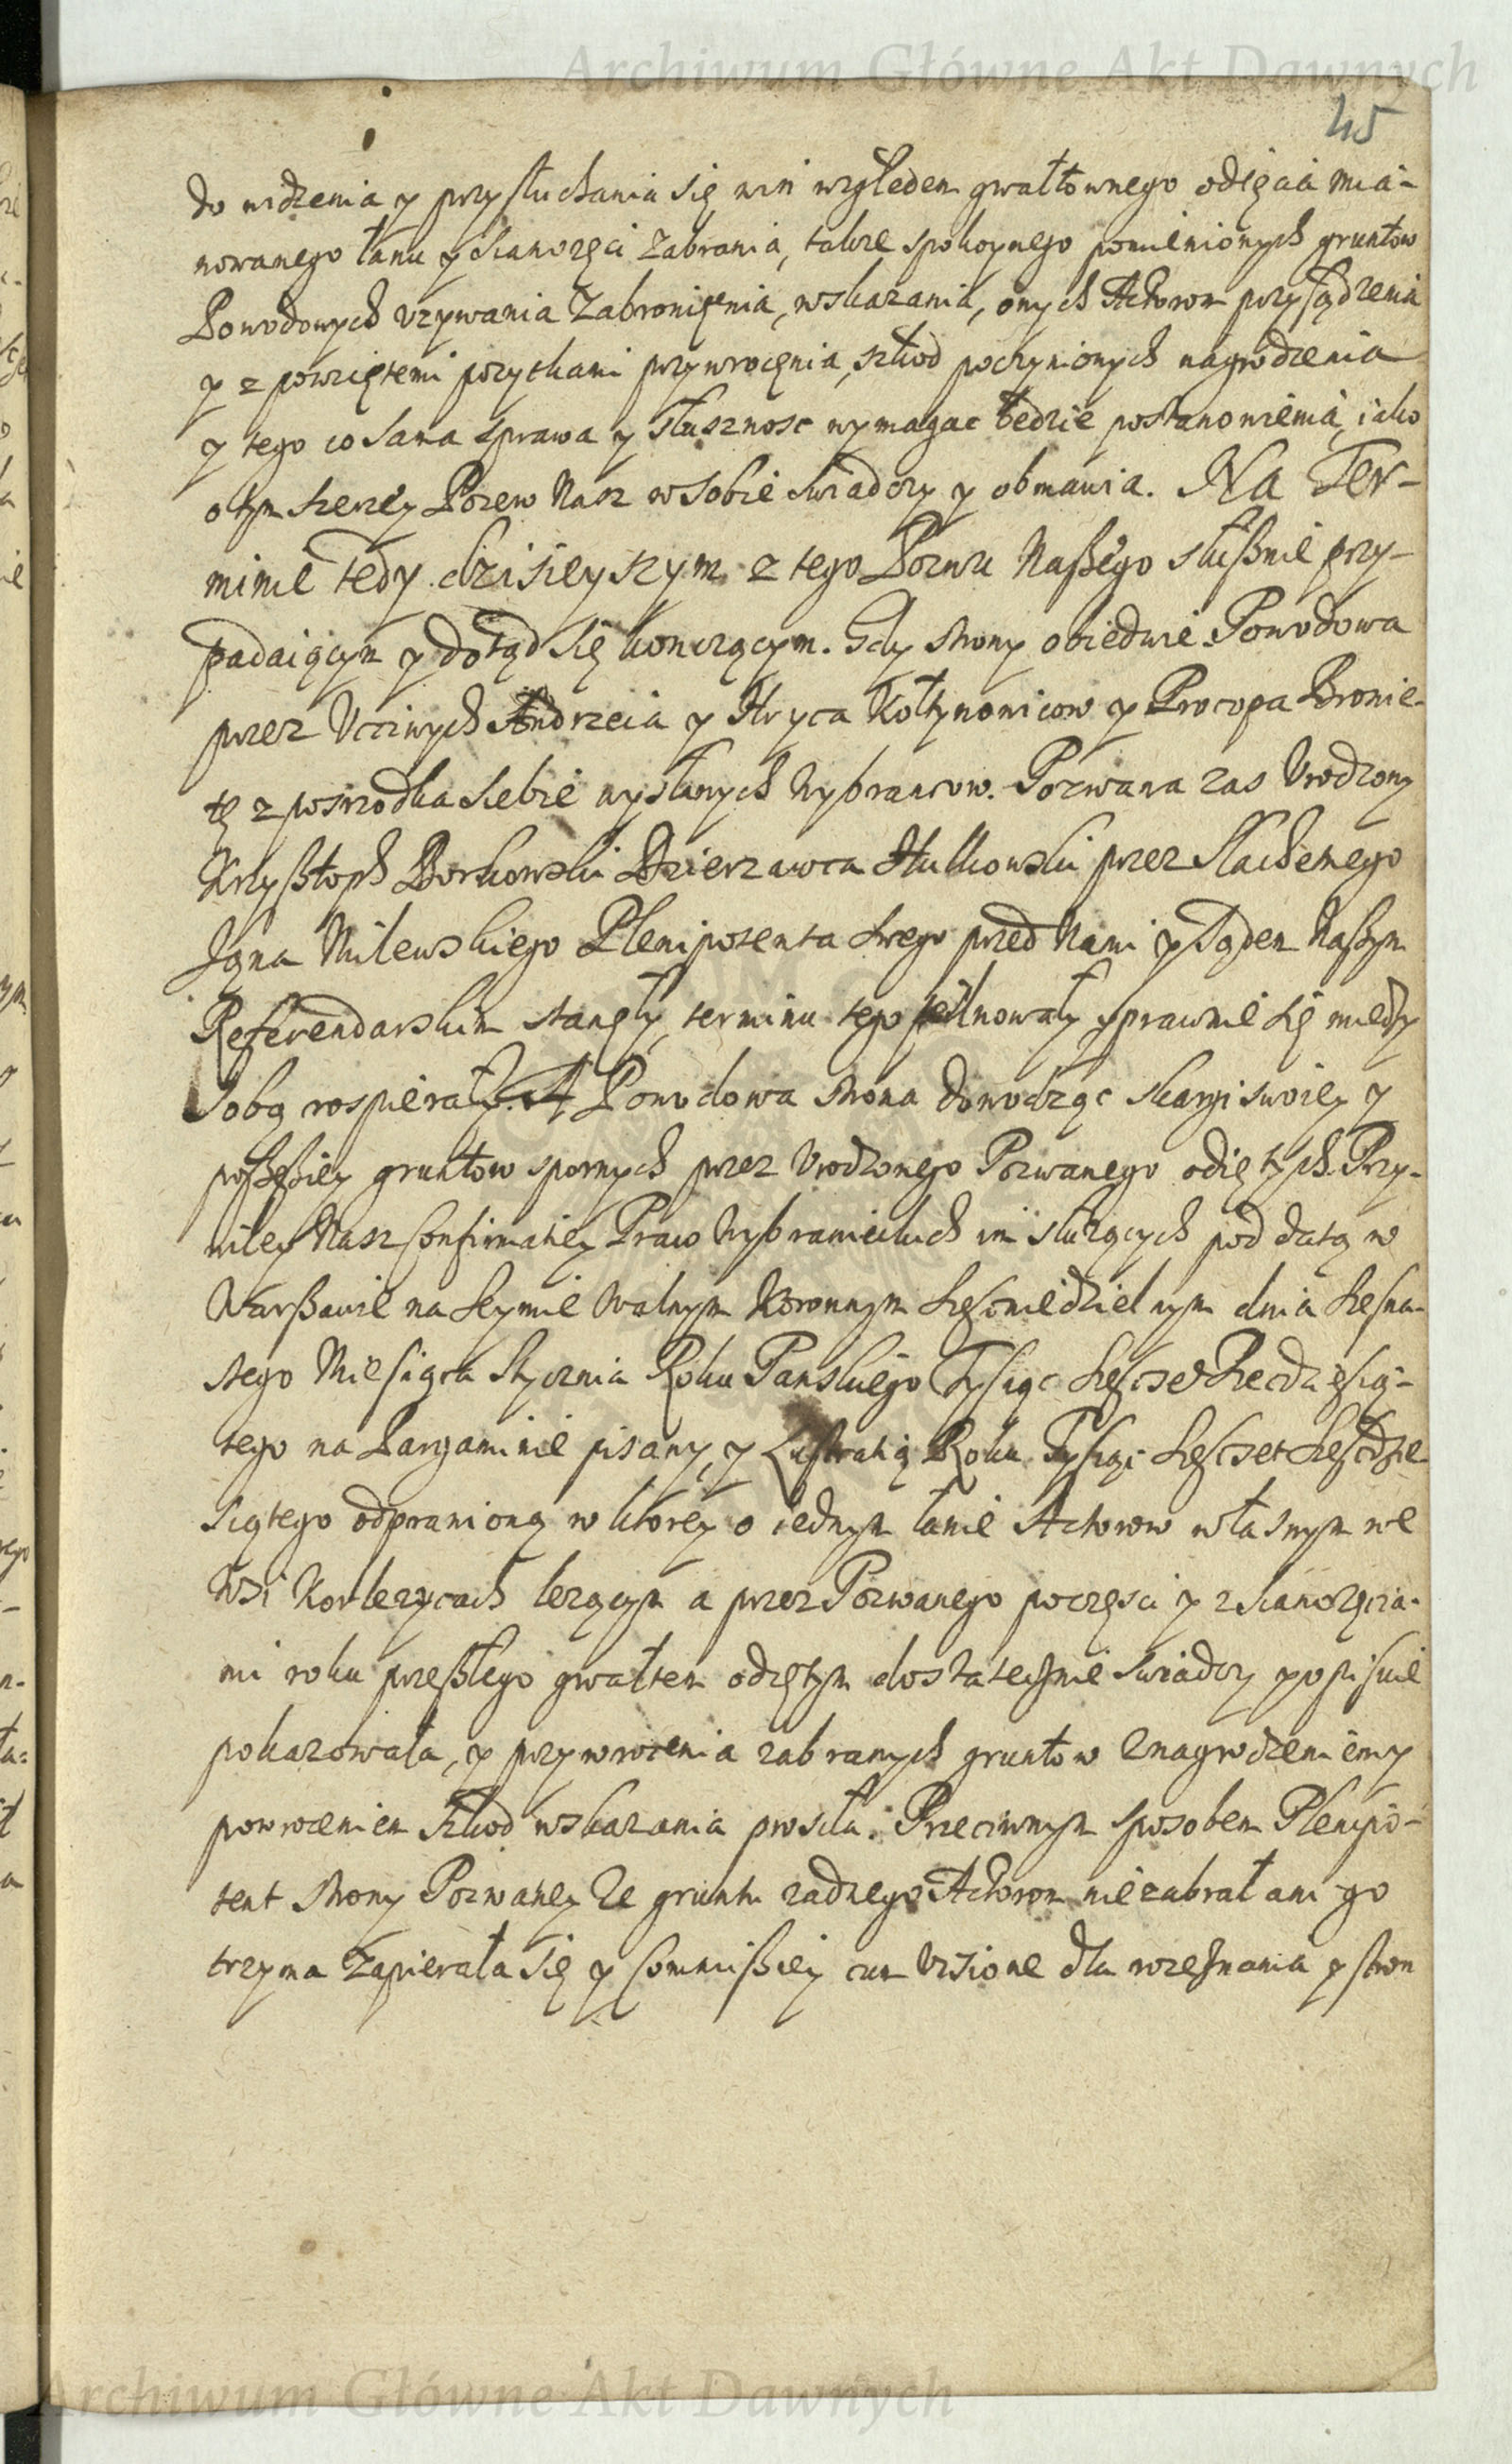 Archiwum Główne Akt Dawnych
45
do widzenia y przysłuchania się win względem gwałtownego odięcia mia-
nowanego łanu y scianozęci zabrania, także spokoynego pomienionych gruntow
Powodowych vzywania zabronięnia, wskazania, onych Actorom przysądzenia
y z powziętemi pozytkami przywrocęnia, szkod poczynionych nagrodzenia
y tego co sama sprawa y słusznosc wymagac będzie postanowienia, iako
o tym szerzey Pozew Nasz w sobie swiadczy y obmawia. Na Ter-
minie tedy dzisieyszym z tego Pozwu Naszego słusznie przy-
padaiącym y dotąd się kończącym. Gdy strony obiedwie Powodowa
przez Vcciwych Andrzeia y Hryca Kołtynowicow y Procopa Bronie-
tę z posrzodka siebie wysłanych Wybrancow. Pozwana zas Vrodzony
Krzysztoph Borkowski Dzierzawca Hulkowski przez Slachetnego
Jana Milewskiego Plenipotenta swego przed Nami y Sądem Naszym
Referendarskim stanęły, terminu tego pilnowały y prawnie się miedzy
sobą rospierały. A Powodowa strona dowodząc skargi swoiey y
possessiey gruntow spornych przez Vrodzonego Pozwanego odiętych. Przy-
wiley Nasz Confirmatiey Praw Wybranieckich im słuzących pod datą w
Warszawie na Seymie Walnym Koronnym szesciniedzielnym dnia szesna-
stego Miesiąca Stycznia Roku Panskiego Tysiąc szescset szescdziesią-
tego na Pargaminie pisany, y Lustratią Roku Tysiąc szescset szescdzie-
siątego odprawioną w ktorey o iednym łanie Actorow własnym we
Wsi Korlezycach lezącym a przez Pozwanego poczęsci y z scianozęcia-
mi roku przeszłego gwałtem odiętym dostatecznie swiadczy y opisuie
pokazowała, y przywrocenia zabranych gruntow z nagrodzeniem y
powroceniem szkod wskazania prosiła. Przeciwnym sposobem Plenipo-
tent strony Pozwaney ze gruntu zadnego Actorom nie zabrał ani go
trzyma zapierała się y Commissiey cum visione dla rozeznania y stron
Archiwum Główne Akt Dawnych